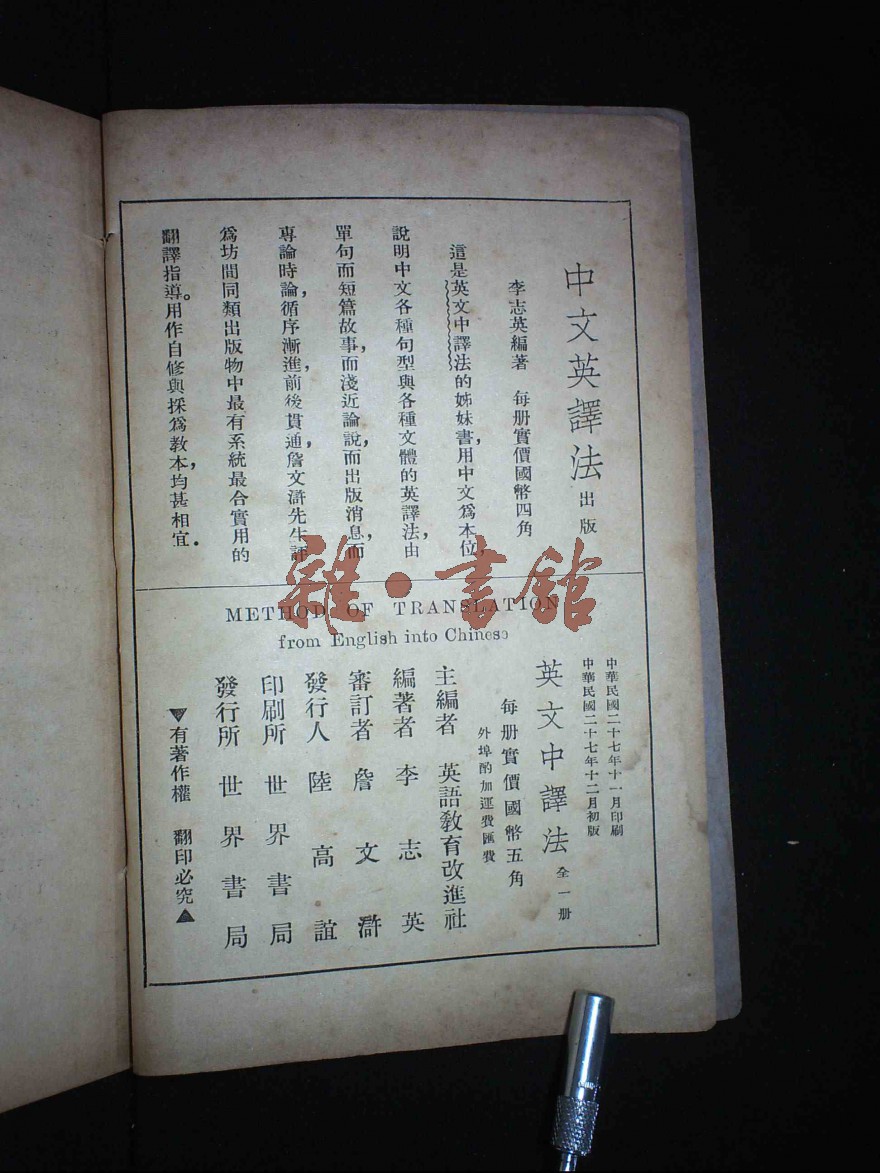 中文英譯法 出版
李志英編著 每册實價國幣四角
這是英文中譯法的姊妹書,用中文爲本位,
說明中文各種句型與各種文體的英譯法,由
單句而短篇故事,而淺近論說,而出版消息,而
專論時論,循序漸進,前後貫通,詹文滸先生評
爲坊間同類出版物中最有系統最合實用的
翻譯指導。用作自修與採爲教本,均甚相宜.
雜·書館
METHOD OF TRANSLATION
from English into Chinese
中華民國二十七年十一月印刷
中華民國二十七年十二月初版
英文中譯法 全一册
每册實價國幣五角
外埠酌加運費匯費
主編者 英語教育改進社
編著者 李志英
審訂者 詹文滸
發行人 陸高誼
印刷所 世界書局
發行所 世界書局
▼有著作權 翻印必究▲